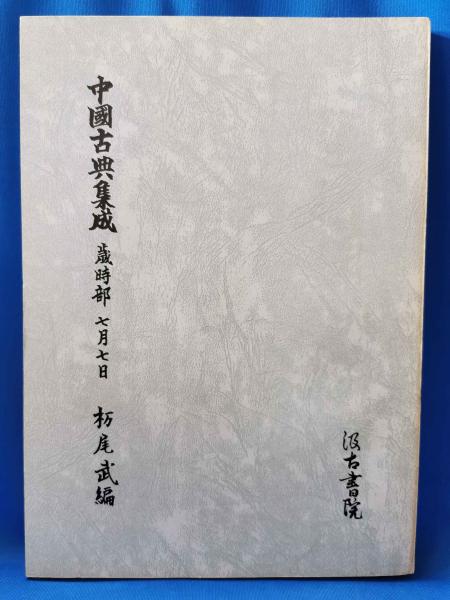 中國古典集成 歳時部 七月七日 栃尾武編
汲古書院